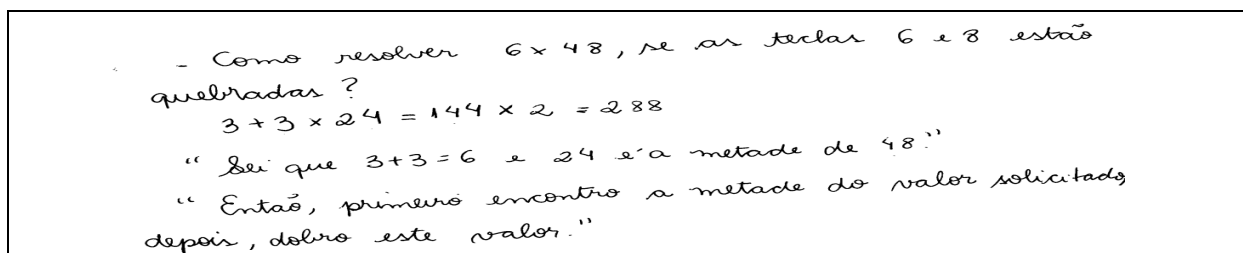 - Como resolver 6 x 48, se as teclas 6 e 8 estão
quebradas ?
3 + 3 x 24 = 144 x 2 = 288
“ Sei que 3+3=6 e 24 é a metade de 48.”
“ Então, primeiro encontro a metade do valor solicitado,
depois, dobro este valor.”